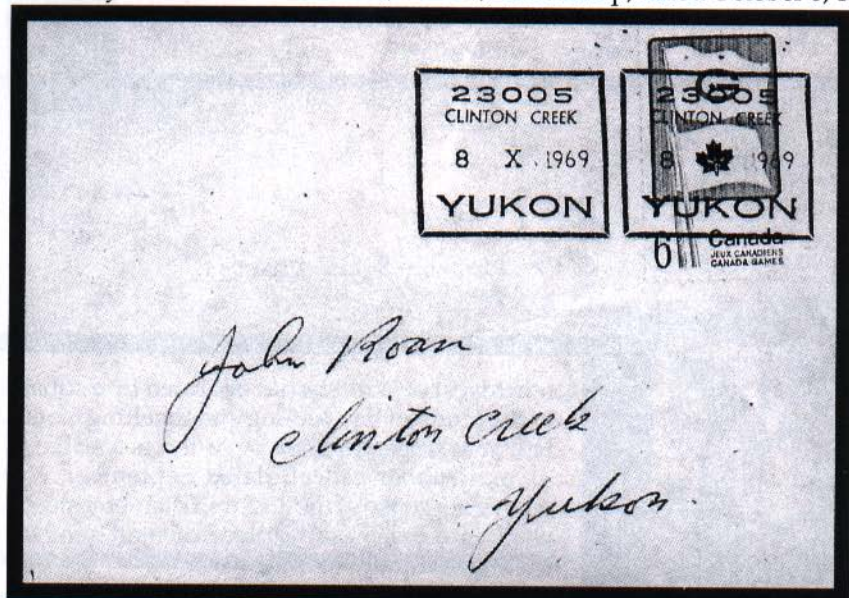 23005
CLINTON CREEK
8 X 1969
YUKON
23005
CLINTON CREEK
8 1969
YUKON
G
6 Canada
JEUX CANADIENS
CANADA GAMES
John Roan
Clinton Creek
Yukon.